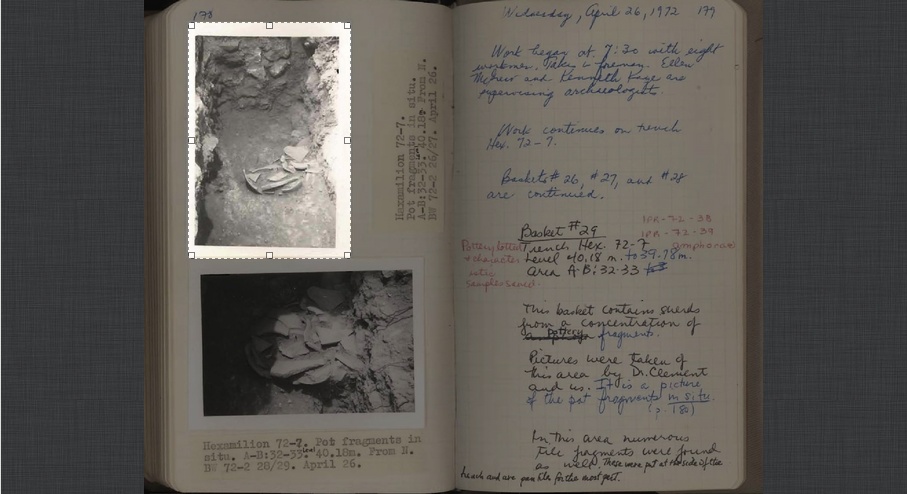 178
Hexamilion 72-7.
Pot fragments in situ.
A-B:32-33. Level 40.18m. From N.
BW 72-2 26/27. April 26.
Hexamilion 72-7. Pot fragments in
situ. A-B:32-33. Level 40.18m. From N.
BW 72-2 28/29. April 26.
Wednesday, April 26, 1972 179
Work began at 7:30 with eight
workmen. Takis is foreman. Ellen
and Kenneth are
supervising archaeologists.
Work continues on trench
Hex. 72-7.
Baskets #26, #27, and #28
are continued.
Basket #29
Trench Hex. 72-7
Level 40.18 m. to 39.78m.
Area A-B:32-33
IPR-72-38
IPR-72-39
(amphorae)
Pottery lotted
+ character
istic
samples saved.
This basket contains sherds
from a concentration of
pottery fragments.
Pictures were taken of
this area by Dr. Clement
and us. It is a picture
of the pot fragments in situ.
(p. 178)
In this area numerous
tile fragments were found
as well. These were put at the side of the
trench and are for the most part.